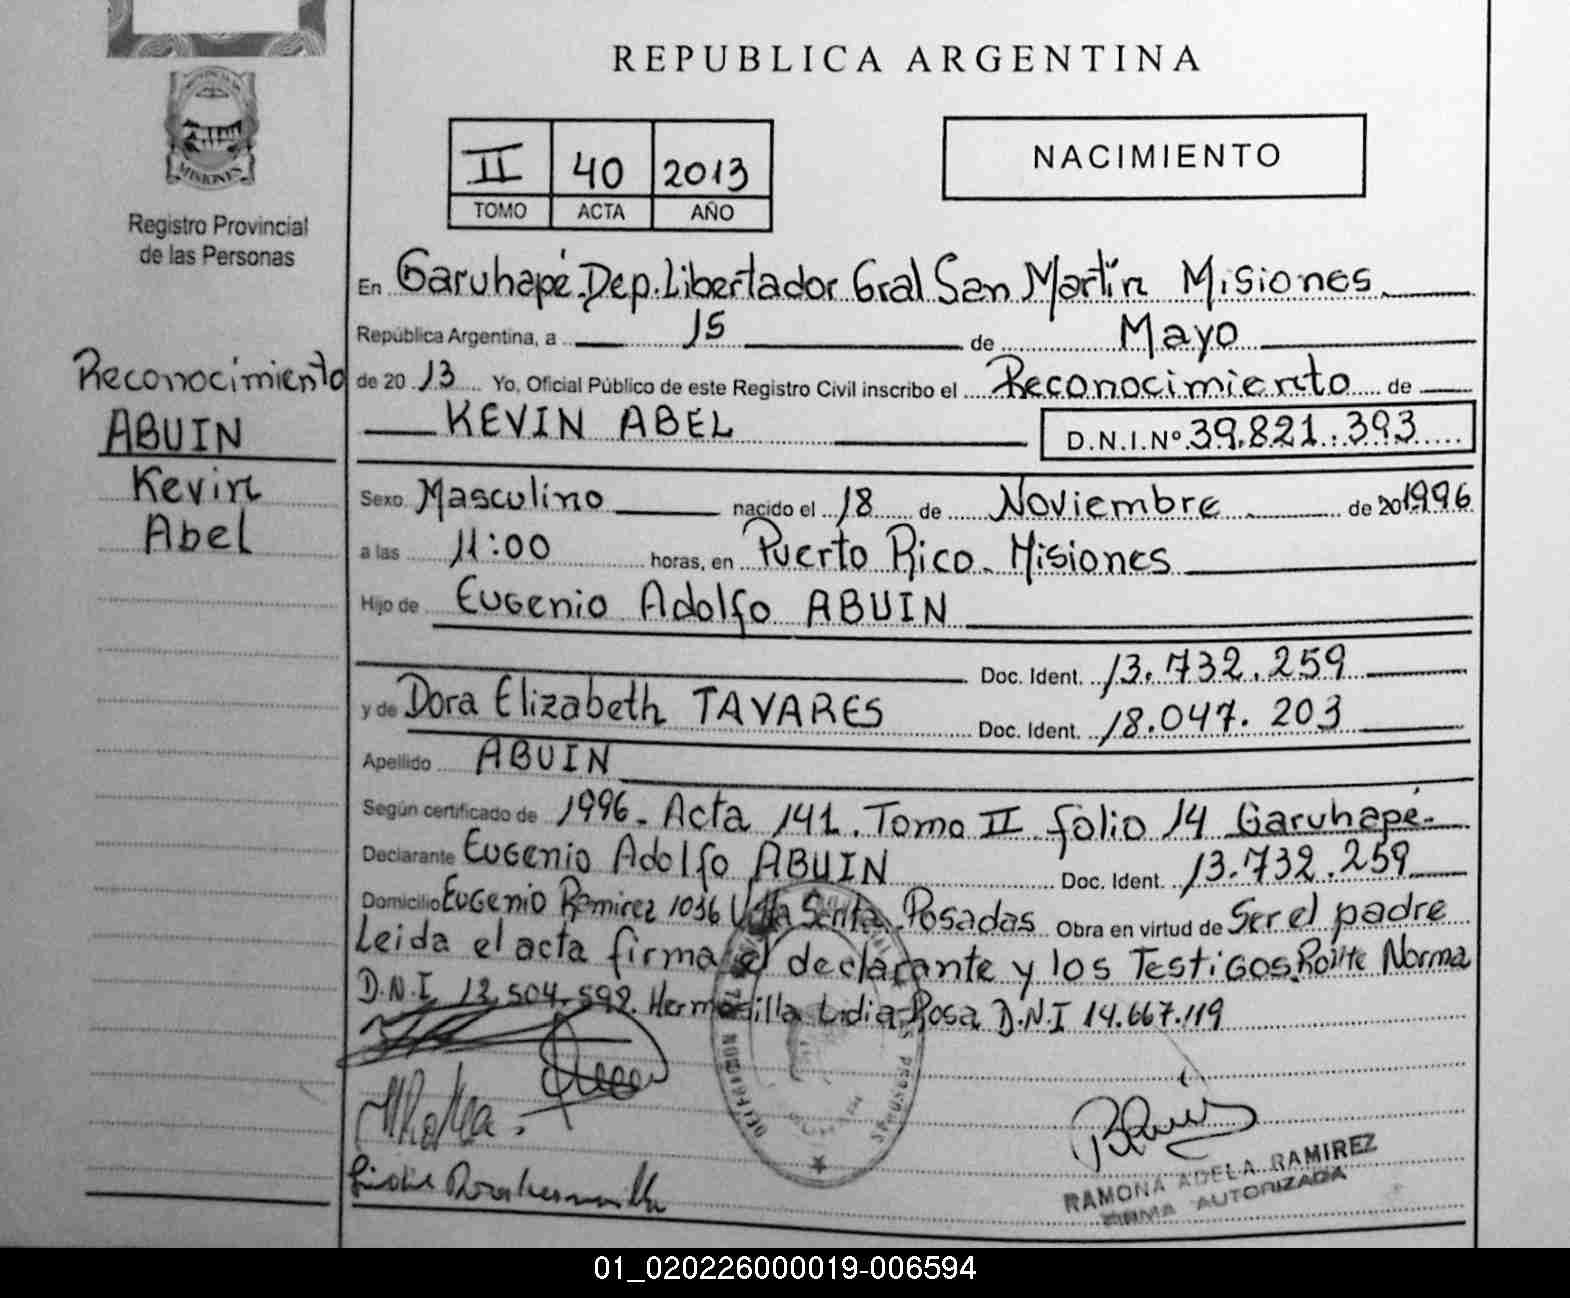 REPUBLICA ARGENTINA
MISIONES
Registro Provincial
de las Personas
II 40 2013
TOMO ACTA AÑO
NACIMIENTO
Reconocimiento
ABUIN
Kevin
Abel
En Garuhapé. Dep. Libertador Gral San Martín Misiones
República Argentina, a 15 de Mayo
de 2013 Yo, Oficial Público de este Registro Civil inscribo el Reconocimiento de
KEVIN ABEL D.N.I.Nº 39.821.393
Sexo Masculino nacido el 18 de Noviembre de 201996
a las 11:00 horas, en Puerto Rico. Misiones
Hijo de Eugenio Adolfo ABUIN
Doc. Ident. 13.732.259
y de Dora Elizabeth TAVARES Doc. Ident. 18.047.203
Apellido ABUIN
Según certificado de 1996. Acta 141. Tomo II folio 14 Garuhapé.
Declarante Eugenio Adolfo ABUIN Doc. Ident. 13.732.259
Domicilio Eugenio Ramirez 1036 Posadas Obra en virtud de Ser el padre
Leida el acta firma el declarante y los Testigos. Norma
D.N.I 12.504.592. Hermosilla Lidia Rosa D.N.I 14.667.119
RAMONA ADELA RAMIREZ
FIRMA AUTORIZADA
01_020226000019-006594